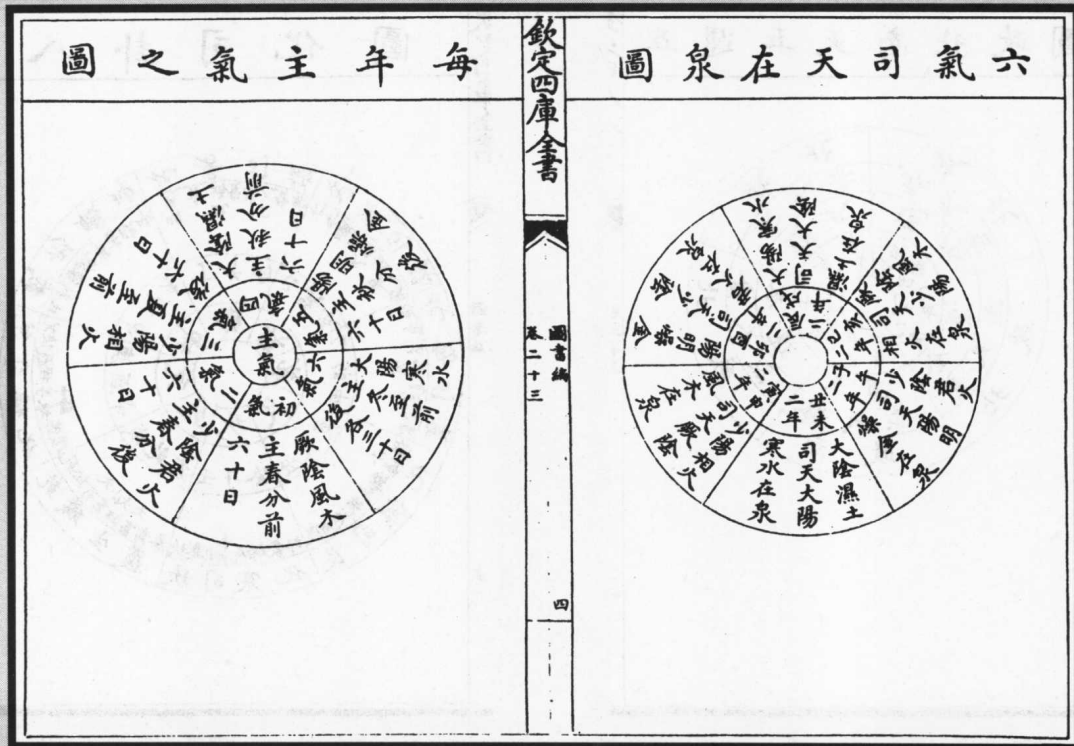 六氣司天在泉圖
子午二年
少陰君火
司天陽明
燥金在泉
丑未二年
大陰濕土
司天大陽
寒水在泉
寅申二年
少陽相火
司天厥陰
風木在泉
卯酉二年
陽明燥金
司天少陰
君火在泉
辰戌二年
太陽寒水
司天大陰
濕土在泉
巳亥二年
厥陰風木
司天少陽
相火在泉
欽定四庫全書
圖書編
卷二十三
四
每年主氣之圖
主氣
初氣
厥陰風木
主春分前
六十日
二氣
少陰君火
主春分後
六十日
三氣
少陽相火
主夏至前
後六十日
四氣
大陰濕土
主秋分前
六十日
五氣
陽明燥
主秋分後
六十日
六氣
太陽寒水
主冬至前
後各三十日